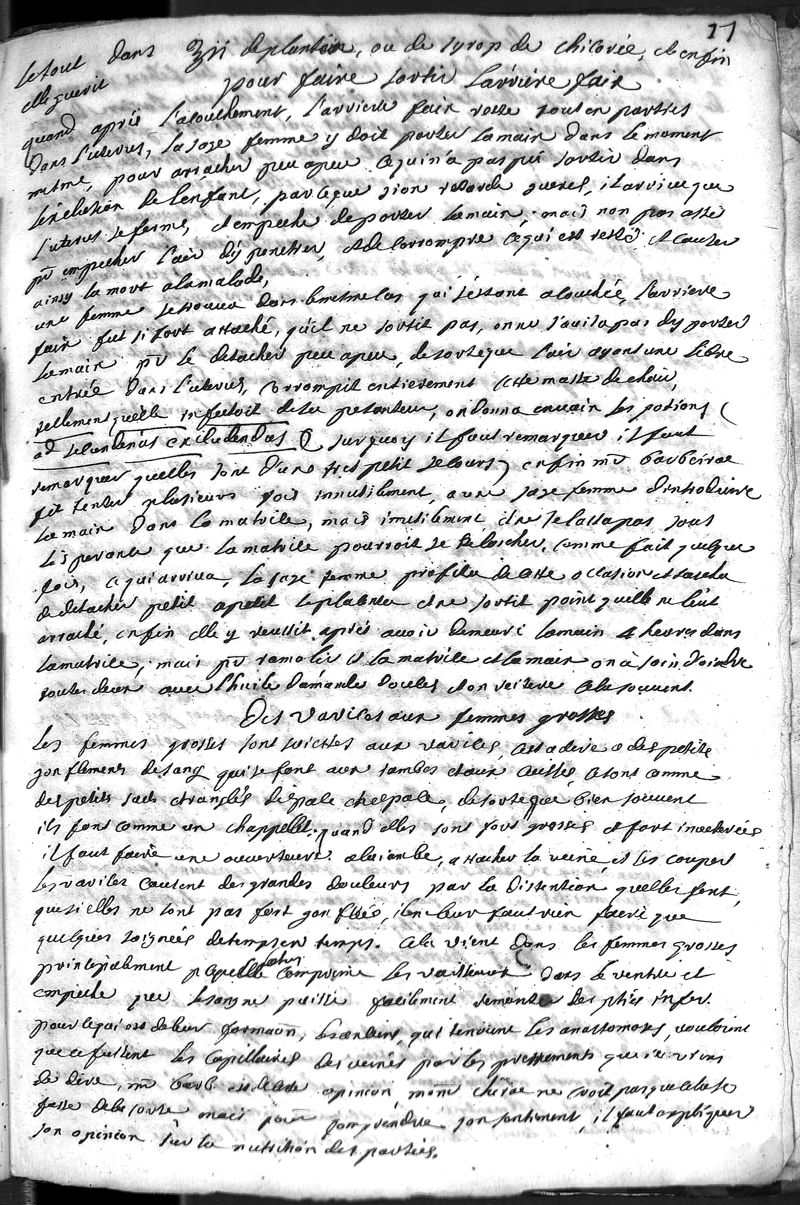 27
le tout dans ʒii de plantin, ou de syrop de chicorée, et enfin
elle guerit
pour faire sortir l'arriere fair
quand aprés l'acouchement, l'arriere fair reste tout en parties
dans l'uterus, la sage femme y doit porter la main dans le moment
mesme, pour arracher peu a peu ce qui n'a pas pû sortir dans
de l'enfant, parceque si on retarde gueres, il arrive que
l'uterus se ferme, et empeche de porter la main, mais non pas assé
pr empecher l'air d'y penetrer, et de corrompre ce qui est resté et causer
ainsy la mort a la malade,
une femme se trouva dans le mesme cas qui s'estant acouchée, l'arriere
fair fut si fort attaché, qu'il ne sortit pas, on ne s'avisa pas d'y porter
la main pr le detacher peu a peu, de sorte que l'air ayant une libre
entrée dans l'uterus, corrompit entierement cette masse de chair,
tellement quelle infectoit de sa puanteur, on donna en vain les potions (
ad secundinas excludendas) surquoy il faut remarquer il faut
remarquer quelles sont d'une tres petit secours, enfin mr barbeirac
fit tenter plusieurs fois inutilment, a une sage femme d'introduire
la main dans la matrice, mais inutilment, il ne se lassa pas, sous
l'esperance que la matrice pourroit se relascher, comme fait quelque
fois, ce qui arriva, la sage femme profita de cette occasion et tascha
de detacher petit a petit le placenta et ne sortit point quelle ne l'eût
arraché, enfin elle y reussit aprés avoir demeuré la main 4 heures dans
la matrice, mais pr ramolir et la matrice et la main on a soin d'oindre
toutes deux avec l'huile d'amandes douces et on reitere cela souvent.
Des varices aux femmes grosses
les femmes grosses sont sujettes aux varices, cest a dire a des petits
gonflements de sang qui se font aux jambes et aux cuisses, ce sont comme
des petits sacs etranglés d'espace en espace, de sorte que bien souvent
ils font comme un chappellet. quand elles sont fort grosses et fort inveterées
il faut faire une ouverture a la jambe, attacher la veine, et les couper
les varices causent des grandes douleurs par la distention quelles font,
que si elles ne sont pas fort gonflées, il ne leur faut rien faire que
quelques saignées de temps en temps. cela vient dans les femmes grosses
principalement parceque le fœtus comprime les vaisseaux dans le ventre et
empeche que le sang ne puisse facilement remonter des parties infer.
pour ce qui est de leur formaon, les anciens, qui tenoient les anastomoses, vouloient
que ce fussent les capillaires des veines
de dire, mr barb. est de cette opinion, monr chirac ne croit pas que cela se
fasse de la sorte mais pour comprendre son sentiment, il faut expliquer
son opinion sur la nutrition des parties.